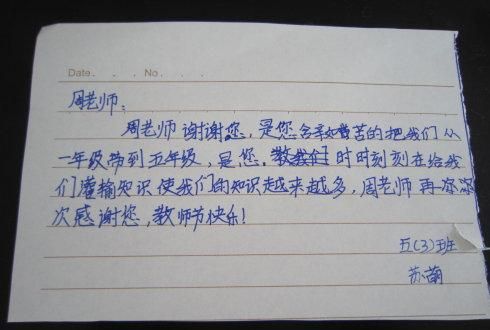 Date. . . No. . . .
周老师:
周老师谢谢您,是您含辛茹苦的把我们从
一年级带到五年级,是您,时时刻刻在给我
们灌输知识使我们的知识越来越多,周老师再一
次感谢您,教师节快乐!
五(3)班
苏萌